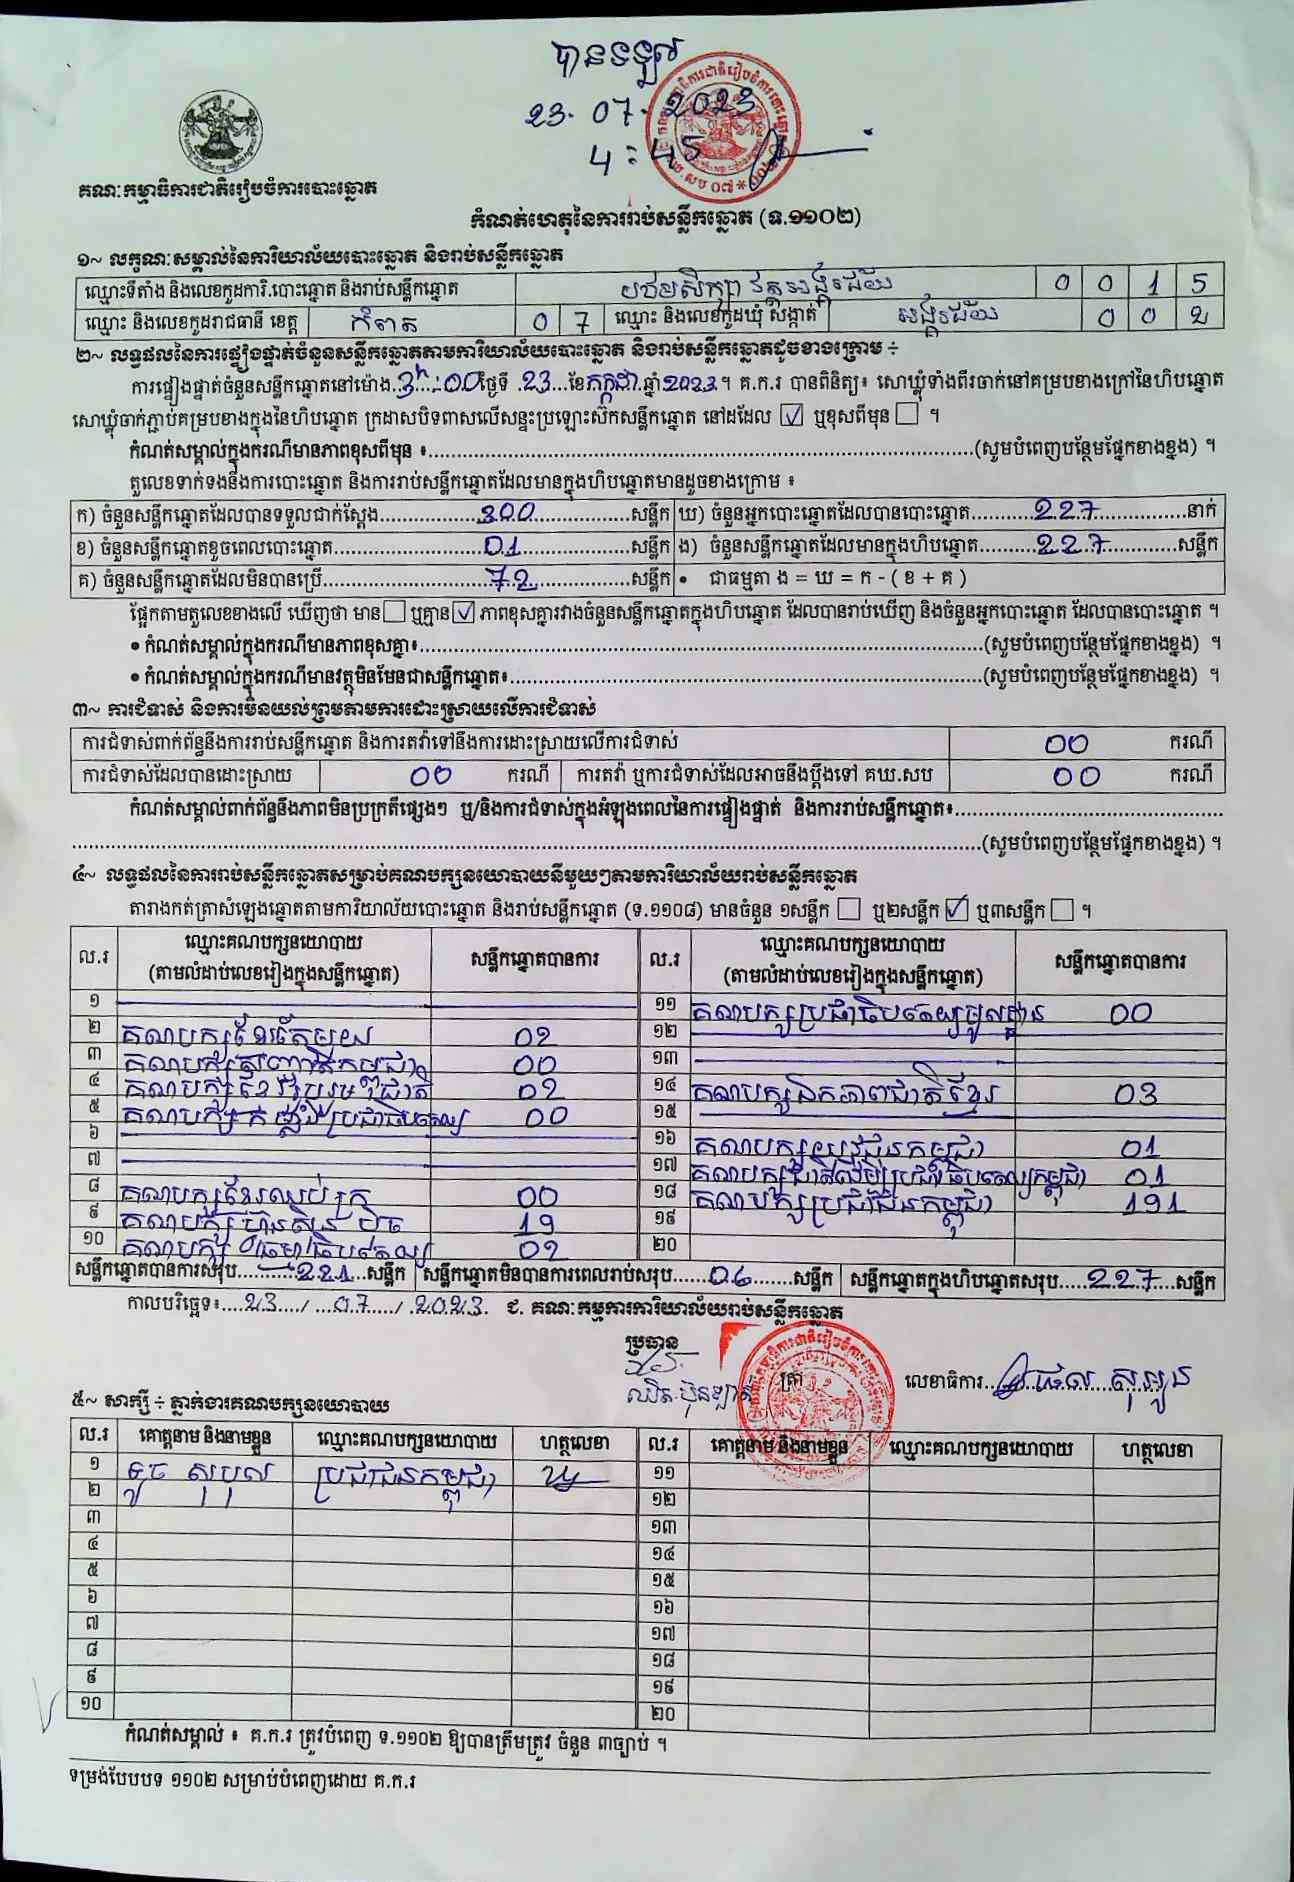 បានទទួល
23. 07. 2023
4:45
គណៈកម្មាធិការជាតិរៀបចំការបោះឆ្នោត
កំណត់ហេតុនៃការរាប់សន្លឹកឆ្នោត (ទ.១១០២)
១~ លក្ខណៈសម្គាល់នៃការិយាល័យបោះឆ្នោត និងរាប់សន្លឹកឆ្នោត
ឈ្មោះទីតាំង និងលេខកូដការិ.បោះឆ្នោត និងរាប់សន្លឹកឆ្នោត បឋមសិក្សា វត្តអង្គរជ័យ 0 0 1 5
ឈ្មោះ និងលេខកូដរាជធានី ខេត្ត កំពត 0 7 ឈ្មោះ និងលេខកូដឃុំ សង្កាត់ អង្គរជ័យ 0 0 2
២~ លទ្ធផលនៃការផ្ទៀងផ្ទាត់ចំនួនសន្លឹកឆ្នោតតាមការិយាល័យបោះឆ្នោត និងរាប់សន្លឹកឆ្នោតដូចខាងក្រោម ÷
ការផ្ទៀងផ្ទាត់ចំនួនសន្លឹកឆ្នោតនៅម៉ោង 3h:00 ថ្ងៃទី 23 ខែ កក្កដា ឆ្នាំ 2023 ។ គ.ក.រ បានពិនិត្យ៖ សោឃ្លុំទាំងពីរចាក់នៅគម្របខាងក្រៅនៃហិបឆ្នោត
សោឃ្លុំចាក់ភ្ជាប់គម្របខាងក្នុងនៃហិបឆ្នោត ក្រដាសបិទពាសលើសន្ទះប្រឡោះស៊កសន្លឹកឆ្នោត នៅដដែល ☑ ឬខុសពីមុន ☐ ។
កំណត់សម្គាល់ក្នុងករណីមានភាពខុសពីមុន ៖ (សូមបំពេញបន្ថែមផ្នែកខាងខ្នង) ។
តួលេខទាក់ទងនឹងការបោះឆ្នោត និងការរាប់សន្លឹកឆ្នោតដែលមានក្នុងហិបឆ្នោតមានដូចខាងក្រោម ៖
ក) ចំនួនសន្លឹកឆ្នោតដែលបានទទួលជាក់ស្តែង 300 សន្លឹក ឃ) ចំនួនអ្នកបោះឆ្នោតដែលបានបោះឆ្នោត 227 នាក់
ខ) ចំនួនសន្លឹកឆ្នោតខូចពេលបោះឆ្នោត 01 សន្លឹក ង) ចំនួនសន្លឹកឆ្នោតដែលមានក្នុងហិបឆ្នោត 227 សន្លឹក
គ) ចំនួនសន្លឹកឆ្នោតដែលមិនបានប្រើ 72 សន្លឹក • ជាធម្មតា ង = ឃ = ក - ( ខ + គ )
ផ្អែកតាមតួលេខខាងលើ ឃើញថា មាន ☐ ឬគ្មាន ☑ ភាពខុសគ្នារវាងចំនួនសន្លឹកឆ្នោតក្នុងហិបឆ្នោត ដែលបានរាប់ឃើញ និងចំនួនអ្នកបោះឆ្នោត ដែលបានបោះឆ្នោត ។
• កំណត់សម្គាល់ក្នុងករណីមានភាពខុសគ្នា៖ (សូមបំពេញបន្ថែមផ្នែកខាងខ្នង) ។
• កំណត់សម្គាល់ក្នុងករណីមានវត្ថុមិនមែនជាសន្លឹកឆ្នោត៖ (សូមបំពេញបន្ថែមផ្នែកខាងខ្នង) ។
៣~ ការជំទាស់ និងការមិនយល់ព្រមតាមការដោះស្រាយលើការជំទាស់
ការជំទាស់ពាក់ព័ន្ធនឹងការរាប់សន្លឹកឆ្នោត និងការតវ៉ាទៅនឹងការដោះស្រាយលើការជំទាស់ 00 ករណី
ការជំទាស់ដែលបានដោះស្រាយ 00 ករណី ការតវ៉ា ឬការជំទាស់ដែលអាចនឹងប្តឹងទៅ គឃ.សប 00 ករណី
កំណត់សម្គាល់ពាក់ព័ន្ធនឹងភាពមិនប្រក្រតីផ្សេងៗ ឬ/និងការជំទាស់ក្នុងអំឡុងពេលនៃការផ្ទៀងផ្ទាត់ និងការរាប់សន្លឹកឆ្នោត៖
(សូមបំពេញបន្ថែមផ្នែកខាងខ្នង) ។
៤~ លទ្ធផលនៃការរាប់សន្លឹកឆ្នោតសម្រាប់គណបក្សនយោបាយនីមួយៗតាមការិយាល័យរាប់សន្លឹកឆ្នោត
តារាងកត់ត្រាសំឡេងឆ្នោតតាមការិយាល័យបោះឆ្នោត និងរាប់សន្លឹកឆ្នោត (ទ.១១០៨) មានចំនួន ១សន្លឹក ☐ ឬ២សន្លឹក ☑ ឬ៣សន្លឹក ☐ ។
ល.រ ឈ្មោះគណបក្សនយោបាយ (តាមលំដាប់លេខរៀងក្នុងសន្លឹកឆ្នោត) សន្លឹកឆ្នោតបានការ ល.រ ឈ្មោះគណបក្សនយោបាយ (តាមលំដាប់លេខរៀងក្នុងសន្លឹកឆ្នោត) សន្លឹកឆ្នោតបានការ
១ ១១ គណបក្សប្រជាធិបតេយ្យមូលដ្ឋាន 00
២ គណបក្សខ្មែរតែមួយ 02 ១២
៣ គណបក្ស 00 ១៣
៤ គណបក្ស 02 ១៤ គណបក្សឯកភាពជាតិខ្មែរ 03
៥ គណបក្សកម្លាំងប្រជាធិបតេយ្យ 00 ១៥
៦ ១៦ គណបក្សយុវជនកម្ពុជា 01
៧ ១៧ គណបក្សជាតិដើម្បីប្រជាធិបតេយ្យកម្ពុជា 01
៨ គណបក្សខ្មែរឈប់ក្រ 00 ១៨ គណបក្សប្រជាជនកម្ពុជា 191
៩ គណបក្សហ៊្វុនស៊ិនប៉ិច 19 ១៩
១០ គណបក្សធម្មាធិបតេយ្យ 02 ២០
សន្លឹកឆ្នោតបានការសរុប 221 សន្លឹក សន្លឹកឆ្នោតមិនបានការពេលរាប់សរុប 06 សន្លឹក សន្លឹកឆ្នោតក្នុងហិបឆ្នោតសរុប 227 សន្លឹក
កាលបរិច្ឆេទ៖ 23 / 07 / 2023. ជ. គណៈកម្មការការិយាល័យរាប់សន្លឹកឆ្នោត
ប្រធាន
ត្រា លេខាធិការ
៥~ សាក្សី ÷ ភ្នាក់ងារគណបក្សនយោបាយ
ល.រ គោត្តនាម និងនាមខ្លួន ឈ្មោះគណបក្សនយោបាយ ហត្ថលេខា ល.រ គោត្តនាម និងនាមខ្លួន ឈ្មោះគណបក្សនយោបាយ ហត្ថលេខា
១ ទូច សុបុល ប្រជាជនកម្ពុជា ១១
២ ១២
៣ ១៣
៤ ១៤
៥ ១៥
៦ ១៦
៧ ១៧
៨ ១៨
៩ ១៩
១០ ២០
កំណត់សម្គាល់ ៖ គ.ក.រ ត្រូវបំពេញ ទ.១១០២ ឱ្យបានត្រឹមត្រូវ ចំនួន ៣ច្បាប់ ។
ទម្រង់បែបបទ ១១០២ សម្រាប់បំពេញដោយ គ.ក.រ